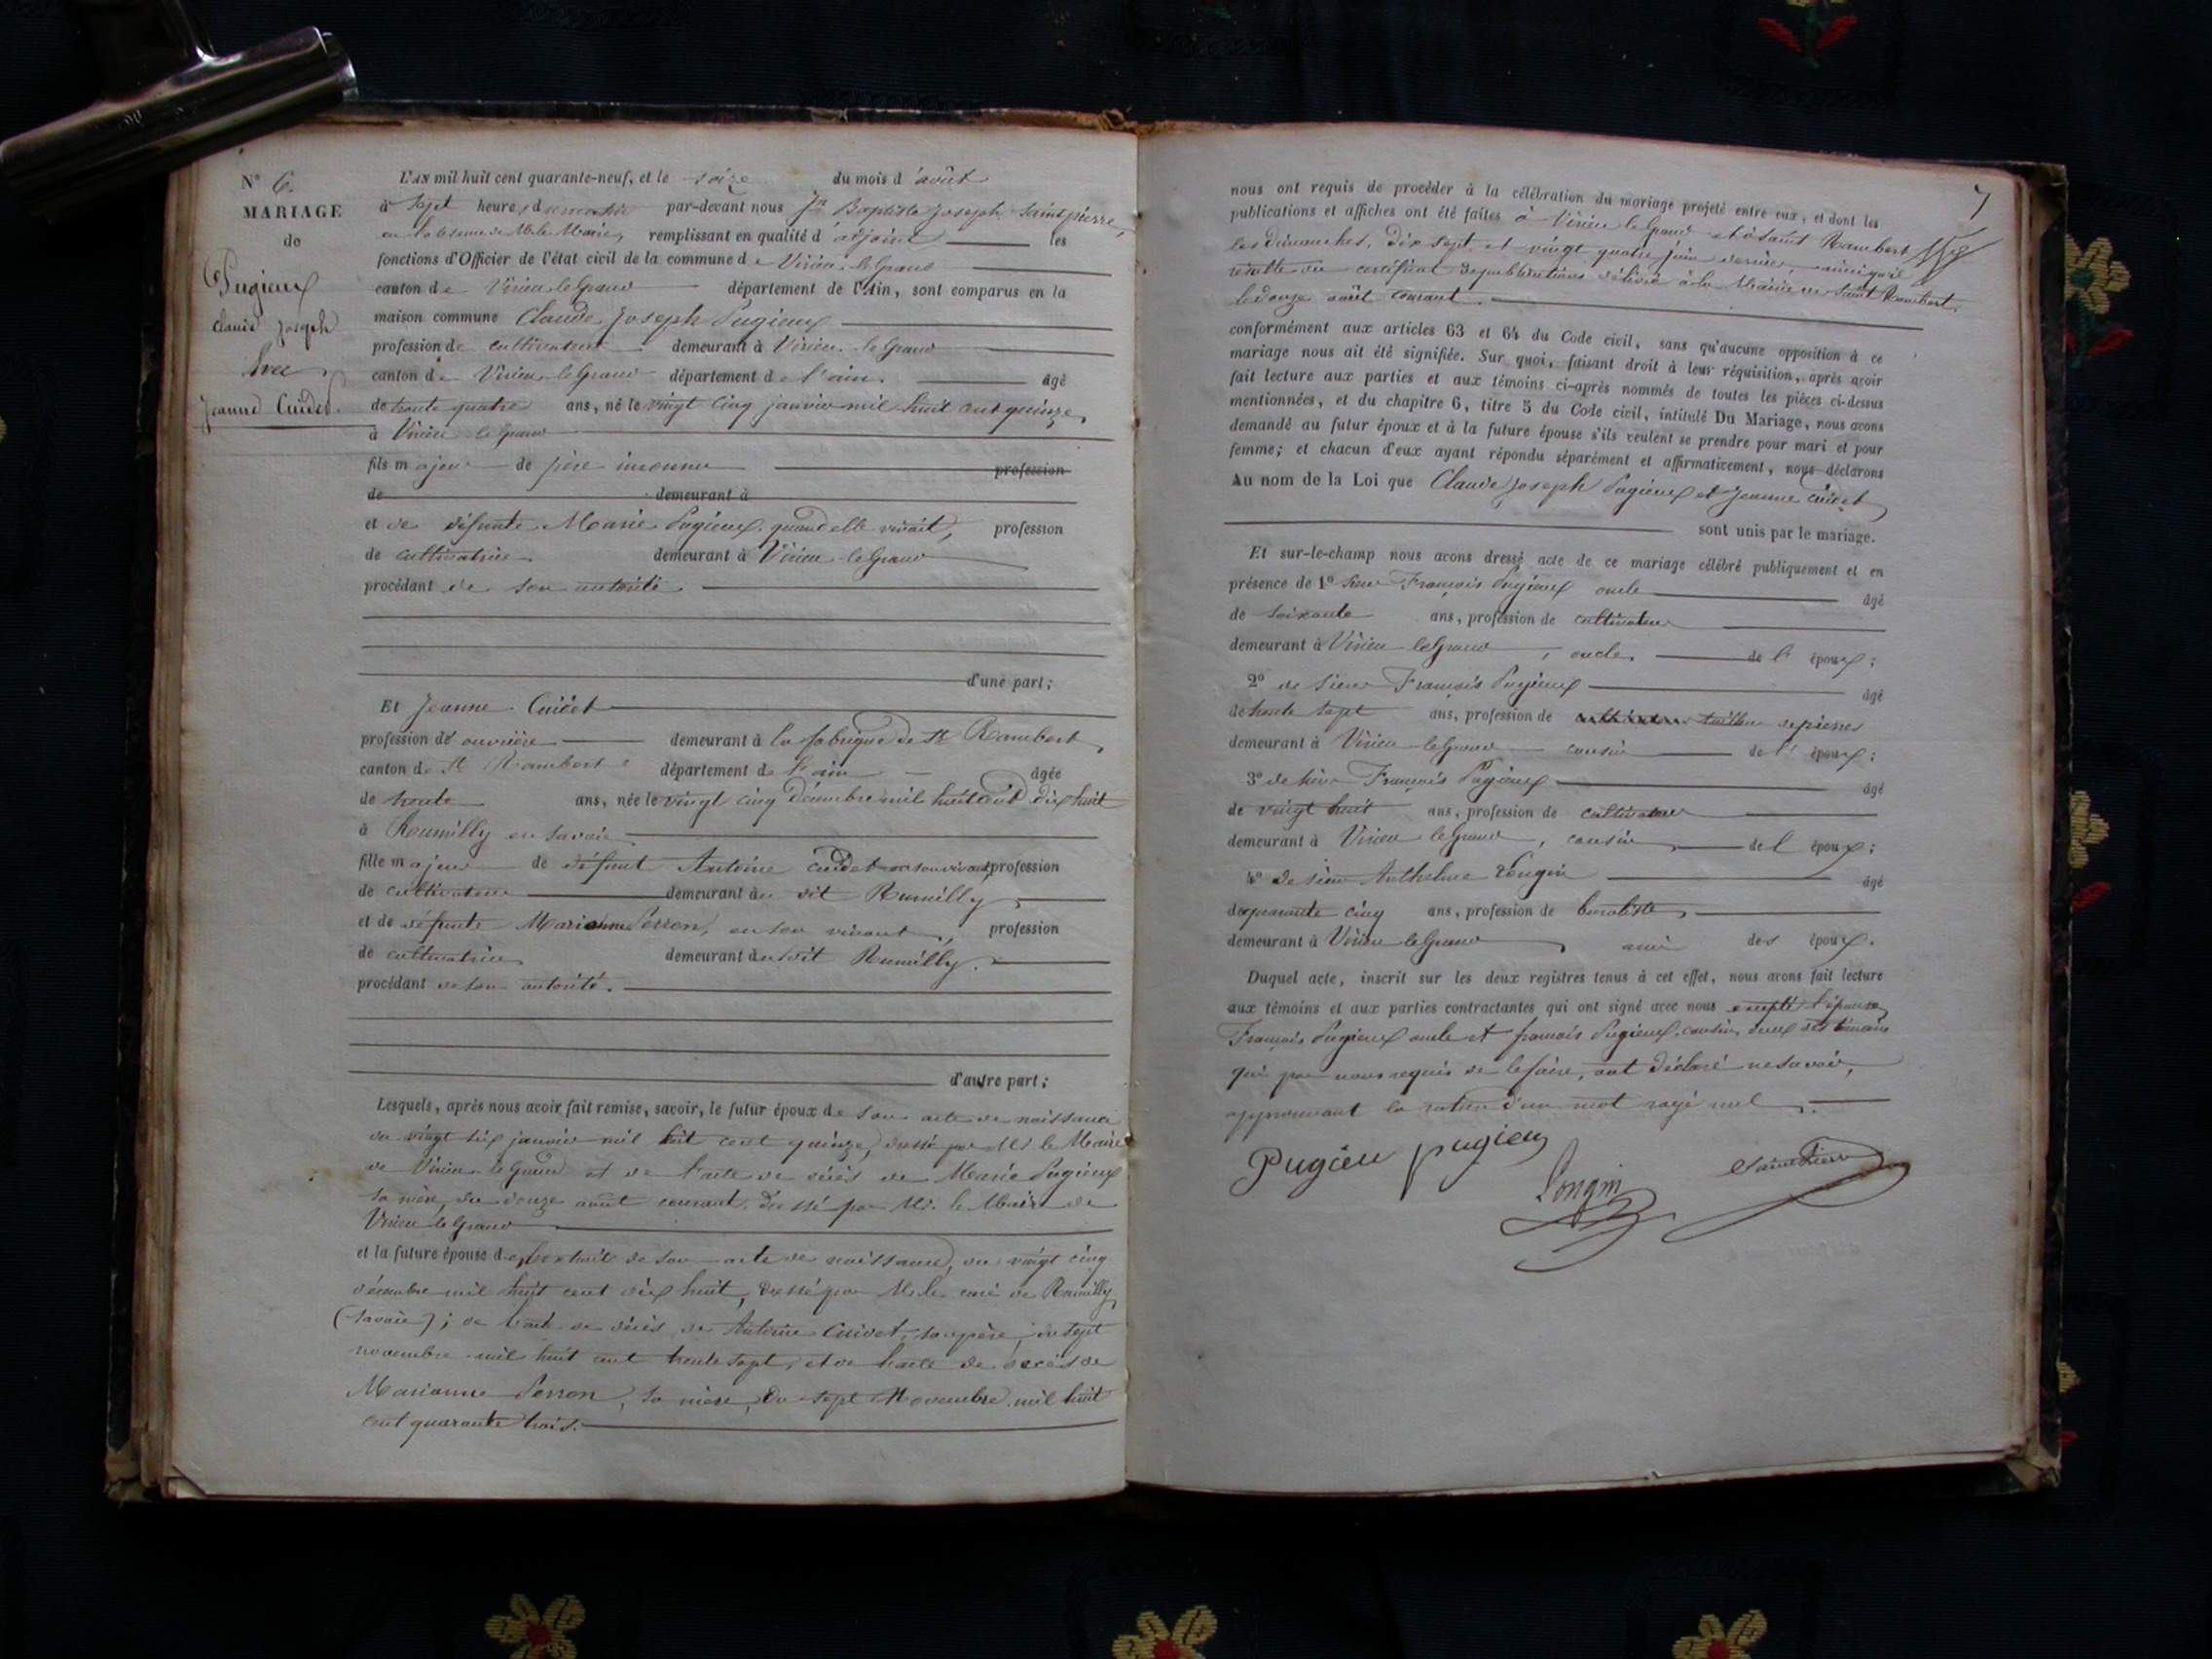 N° 6.
MARIAGE
de
Pugieux
Claude Joseph
Avec
Jeanne Cuidet.
L'AN mil huit cent quarante-neuf, et le seize du mois d'août
à sept heures du matin par-devant nous Jn Baptiste Joseph Saintpierre,
en l'absence de Mr le Maire, remplissant en qualité d'adjoint les
fonctions d'Officier de l'état civil de la commune de Virieu le Grand
canton de Virieu le Grand département de l'Ain, sont comparus en la
maison commune Claude Joseph Pugieux
profession de cultivateur demeurant à Virieu le Grand
canton de Virieu le Grand département de l'ain. âgé
de trente quatre ans, né le vingt cinq janvier mil huit cent quinze,
à Virieu le Grand
fils majeur de père inconnu profession
de demeurant à
et de défunte Marie Pugieux, quand elle vivait, profession
de cultivatrice demeurant à Virieu le Grand
procédant de son autorité.
d'une part;
Et Jeanne Cuidet
profession de ouvrière demeurant à la fabrique de St Rambert,
canton de St Rambert département de l'ain âgée
de trente ans, née le vingt cinq décembre mil huit cent dix huit
à Roumilly en Savoie
fille majeure de défunt Antoine Cuidet en son vivant, profession
de cultivateur demeurant au dit Rumilly,
et de défunte Marianne Perron, en son vivant, profession
de cultivatrice demeurant au dit Rumilly.
procédant de son autorité.
d'autre part;
Lesquels, après nous avoir fait remise, savoir, le futur époux de son acte de naissance
du vingt six janvier mil huit cent quinze, dressé par Mr le Maire
de Virieu le Grand et de l'acte de décès de Marie Pugieux
sa mère, du douze août courant, dressé par Mr. le Maire de
Virieu le Grand
et la future épouse de l'extrait de son acte de naissance, du vingt cinq
décembre mil huit cent dix huit, dressé par Mr le curé de Rumilly
(Savoie); de l'acte de décès de Antoine Cuidet, son père, du sept
novembre mil huit cent trente sept, et de l'acte de décès de
Marianne Perron, sa mère, du sept Novembre mil huit
cent quarante trois.
7
nous ont requis de procéder à la célébration du mariage projeté entre eux, et dont les
publications et affiches ont été faites à Virieu le Grand et à Saint Rambert
les dimanches, dix sept et vingt quatre juin dernier, ainsi qu'il
résulte du certificat de publications délivré à la Mairie de Saint Rambert
le douze août courant.
conformément aux articles 63 et 64 du Code civil, sans qu'aucune opposition à ce
mariage nous ait été signifiée. Sur quoi, faisant droit à leur réquisition, après avoir
fait lecture aux parties et aux témoins ci-après nommés de toutes les pièces ci-dessus
mentionnées, et du chapitre 6, titre 5 du Code civil, intitulé Du Mariage, nous avons
demandé au futur époux et à la future épouse s'ils veulent se prendre pour mari et pour
femme; et chacun d'eux ayant répondu séparément et affirmativement, nous déclarons
Au nom de la Loi que Claude Joseph Pugieux et Jeanne Cuidet
sont unis par le mariage.
Et sur-le-champ nous avons dressé acte de ce mariage célébré publiquement et en
présence de 1° sieur François Pugieux oncle âgé
de soixante ans, profession de cultivateur
demeurant à Virieu le Grand, oncle de l'époux;
2° de sieur François Pugieux âgé
de trente sept ans, profession de tailleur de pierres
demeurant à Virieu le Grand cousin de l'époux;
3° de sieur François Pugieux âgé
de vingt huit ans, profession de cultivateur
demeurant à Virieu le Grand, cousin de l'époux;
4° de sieur Anthelme Longin âgé
de quarante cinq ans, profession de buraliste,
demeurant à Virieu le Grand, ami des époux.
Duquel acte, inscrit sur les deux registres tenus à cet effet, nous avons fait lecture
aux témoins et aux parties contractantes qui ont signé avec nous excepté l'épouse,
François Pugieux oncle et françois Pugieux cousin, deux des témoins
qui par nous requis de le faire, ont déclaré ne savoir,
approuvant la rature d'un mot rayé nul.
Pugieu pugieu
Longin
SaintPierre